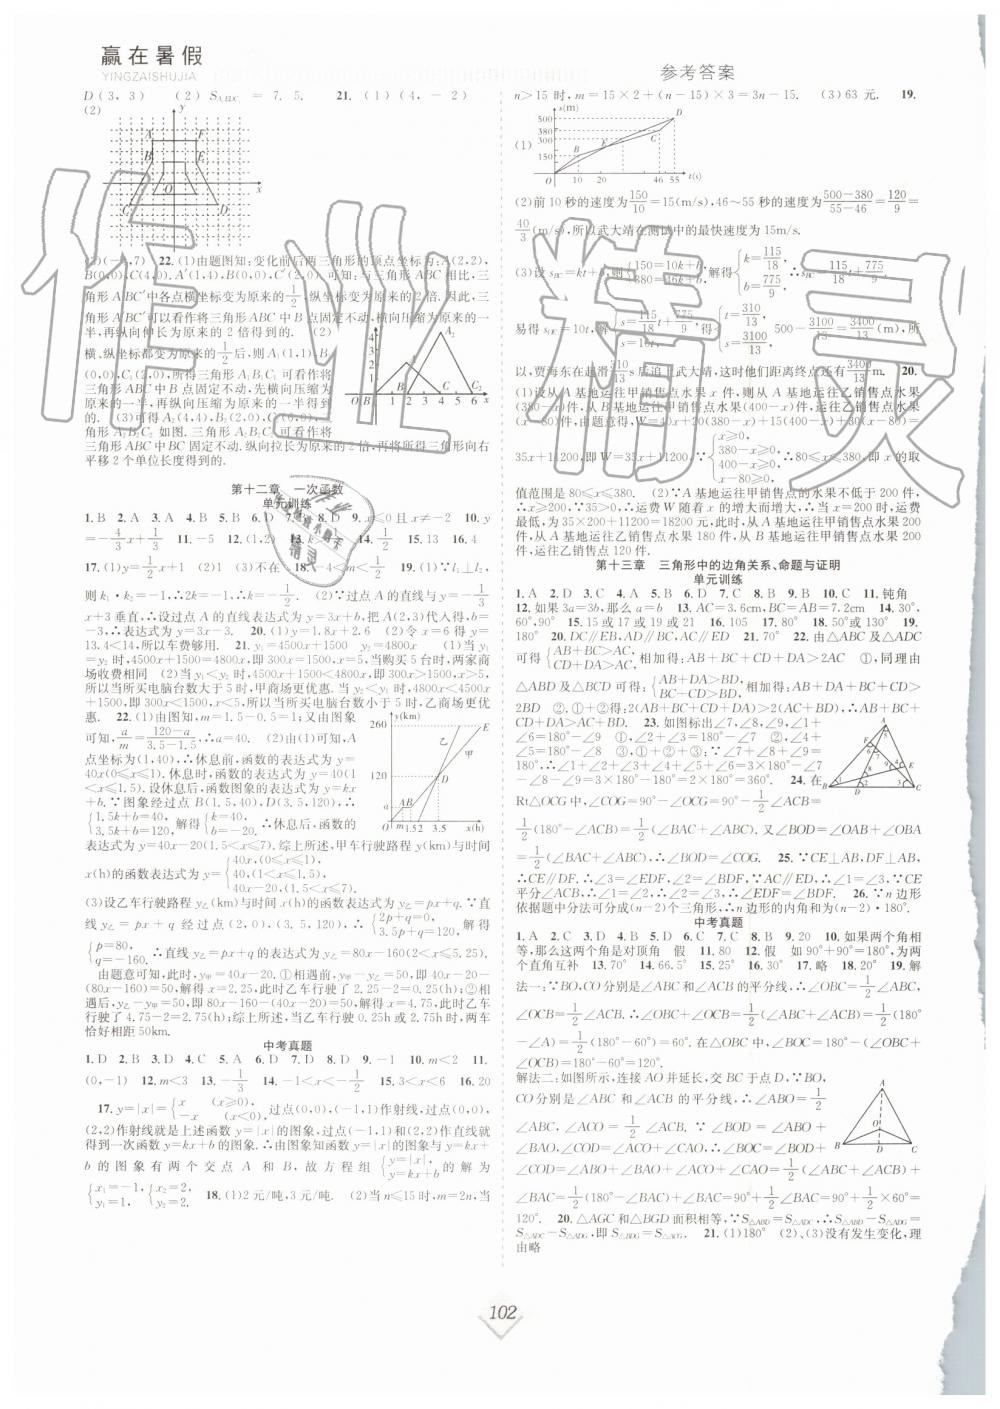 赢在暑假
YINGZAISHUJIA
参考答案
D(3,3) (2) = 7.5. 21.(1)(4,-2)
(2)
(3)(-1,7) 22.(1)由题图知:变化前后两三角形的顶点坐标为:A(2,2),
B(0,0),C(4,0),A′(1,4),B(0,0),C′(2,0)可知:与三角形ABC相比,三
角形A′BC′中各点横坐标变为原来的1/2,纵坐标变为原来的2倍.因此,三
角形A′BC′可以看作将三角形ABC中B点固定不动,横向压缩为原来的一
半,再纵向伸长为原来的2倍得到的. (2)
横、纵坐标都变为原来的1/2后,则A₁(1,1),B
(0,0),C₁(2,0),所得三角形可以看作将
三角形ABC中B点固定不动,先横向压缩为
原来的一半,再纵向压缩为原来的一半得到
的. (3)可得
如图.三角形 可以看作将
三角形ABC中BC固定不动.纵向拉长为原来的2倍,再将所得三角形向右
平移2个单位长度得到的.
第十二章 一次函数
单元训练
1.B 2.A 3.A 4.B 5.B 6.D 7. 8.D 9.x≤0且x≠-2 10.y
=-4/3x+1/3 11.-5 12.(1,2) 14.2 15.13 16.4
17.(1)y= x+1 (2)1 (3)不在 18.-4<m<-1/2 19.(1)∵l₁⊥l₂,
则k₁·k₂=-1,∴2k=-1,∴k=-1/2. (2)∵过点A的直线与y=-1/3
x+3垂直,∴设过点A的直线表达式为y=3x+b,把A(2,3)代入得,b=
-3,∴表达式为y=3x-3. 20.(1)y=1.8x+2.6 (2)令x=6得y=
13.4<14,所以车费够用. 21.y₁=4500x+1500 y₂=4800x. (1)当y₁
=y₂时,4500x+1500=4800x,即300x=1500,x=5,当购买5台时,两家商
场收费相同 (2)当y₁<y₂时,4500x+1500<4800x,即300x>1500,x>5,
所以当所买电脑台数大于5时,甲商场更优惠.当y₂<y₁时,4800x<4500x
+1500,即300x<1500,x<5,所以当所买电脑台数小于5时,乙商场更优
惠. 22.(1)由图知,m=1.5-0.5=1;又由图象
可知,a/m=(120-a)/(3.5-1.5),∴a=40. (2)由图知,A
点坐标为(1,40),∴休息前,函数的表达式为y=
40x(0≤x≤1).休息时,函数的表达式为y=40(1
<x≤1.5).设休息后,函数图象的表达式为y=kx
+b.∵图象经过点B(1.5,40),D(3.5,120),∴
{1.5k+b=40, 3.5k+b=120, 解得{k=40, b=-20. ∴休息后,函数的
表达式为y=40x-20(1.5<x≤7).综上所述,甲车行驶路程y(km)与时间
x(h)的函数表达式为y={40x,(0≤x≤1), 40,(1<x≤1.5), 40x-20.(1.5<x≤7)
(3)设乙车行驶路程y乙与时间x(h)的函数表达式为y乙=px+q.∵直
线y乙=px+q经过点(2,0),(3.5,120),∴{2p+q=0, 3.5p+q=120. 解得
{p=80, q=-160. ∴直线y乙=px+q的表达式为y=80x-160(2<x≤5.25).
由题意可知,此时,y甲=40x-20.①相遇前,y甲-y乙=50,即40x-20-
(80x-160)=50,解得x=2.25,此时乙车行驶了2.25-2=0.25(h);②相
遇后,y乙-y甲=50,即80x-160-(40x-20)=50,解得x=4.75,此时乙车
行驶了4.75-2=2.75(h);综上所述,当乙车行驶了0.25h或2.75h,两车
恰好相距50km.
中考真题
1.D 2.B 3.D 4.C 5.A 6.D 7.D 8.D 9.-1 10.m<2 11.
(0,-1) 12.m<3 13.-1/3 14.-1<x<-1/2 15.3<x<6 16.20
17.y=|x|={x (x≥0), -x (x<0), 过点(0,0),(-1,1)作射线,过点(0,0),(2,2)
作射线就是上述函数y=|x|的图象,过点(-1,1)和(2,2)作直线就
得到一次函数y=kx+b的图象.∴由图象知函数y=|x|的图象与y=kx+
b的图象有两个交点A和B,故方程组{y=|x|, y=kx+b 的解为
{x₁=-1, y₁=1, {x₂=2, y₂=2. 18.(1)2元/吨,3元/吨. (2)当n≤15时,m=2n,当
n>15时,m=15×2+(n-15)×3=3n-15. (3)63元. 19.
(1)
(2)前10秒的速度为150/10=15(m/s),46~55秒的速度为(500-380)/(55-46)=120/9=
40/3(m/s),所以武大靖在测试中的最快速度为15m/s.
(3)设s_BC=kt+b,则{150=10k+b, 380=46k+b, 解得{k=115/18, b=775/9, ∴s_BC=115/18t+775/9,
易得s_OE=10t,解{s=115/18t+775/9, s=10t, 得{t=310/13, s=3100/13 500-3100/13=3400/13(m),所
以,贾海东在起滑310/13s后追上武大靖,这时他们距离终点还有3400/13m. 20.
(1)设从A基地运往甲销售点水果x件,则从A基地运往乙销售点水果
(380-x)件,从B基地运往甲销售点水果(400-x)件,运往乙销售点水果
(x-80)件,由题意得,W=40x+20(380-x)+15(400-x)+30(x-80)=
35x+11200,即W=35x+11200,∵{x≥0, 380-x≥0, 400-x≥0, x-80≥0, ∴80≤x≤380,即x的取
值范围是80≤x≤380. (2)∵A基地运往甲销售点的水果不低于200件,
∴x≥200,∵35>0,∴运费W随着x的增大而增大,∴当x=200时,运费
最低,为35×200+11200=18200元,此时,从A基地运往甲销售点水果200
件,运往乙销售点水果180件,从B基地运往甲销售点水果200件,运往乙销售点120件.
第十三章 三角形中的边角关系、命题与证明
单元训练
1.A 2.D 3.C 4.A 5.B 6.B 7.C 8.B 9.B 10.C 11.钝角
12.如果3a=3b,那么a=b 13.AC=3.6cm,BC=AB=7.2cm 14.30°,
60°,90° 15.15或17或19或21 16.105° 17.80° 18.50°或130° 19.
180° 20.DC∥EB,AD∥BC,AC∥ED 21.70° 22.由△ABC及△ADC
可得{AB+BC>AC, CD+DA>AC, 相加得:AB+BC+CD+DA>2AC ①,同理由
△ABD及△BCD可得:{AB+DA>BD, BC+CD>BD, 相加得:AB+DA+BC+CD>
2BD ②,①+②得:2(AB+BC+CD+DA)>2(AC+BD),∴AB+BC+
CD+DA>AC+BD. 23.如图标出∠7,∠8,∠9,∠1+
∠6=180°-∠9 ①,∠2+∠3=180°-∠7 ②,∠4+
∠5=180°-∠8 ③,①+②+③:∵∠7+∠8+∠9=
180°,∴∠1+∠2+∠3+∠4+∠5+∠6=3×180°-∠7
-∠8-∠9=3×180°-180°=2×180°=360°. 24.在
Rt△OCG中,∠COG=90°-∠OCG=90°-1/2∠ACB=
1/2(180°-∠ACB)=1/2(∠BAC+∠ABC).又∠BOD=∠OAB+∠OBA
=1/2(∠BAC+∠ABC),∴∠BOD=∠COG. 25.∵CE⊥AB,DF⊥AB,
∴CE∥DF.∴∠3=∠EDF,∠2=∠BDF.∵AC∥ED,∴∠1=∠3.∵CE
平分∠ACB,∴∠1=∠2.∴∠EDF=∠BDF. 26.∵n边形
依据题中分法可分成(n-2)个三角形,∴n边形的内角和为(n-2)·180°.
中考真题
1.A 2.C 3.D 4.B 5.C 6.C 7.C 8.B 9.20 10.如果两个角相
等,那么这两个角是对顶角 假 11.80 12.假 如90°+90°=180° 13.为
两个直角互补 13.70° 14.66.5° 15.25° 16.30° 17.略 18.20° 19.解
法一:∵BO,CO分别是∠ABC和∠ACB的平分线,∴∠OBC=1/2∠ABC,
∠OCB=1/2∠ACB.∴∠OBC+∠OCB=1/2(∠ABC+∠ACB)=1/2(180°
-∠A)=1/2(180°-60°)=60°.在△OBC中,∠BOC=180°-(∠OBC+
∠OCB)=180°-60°=120°.
解法二:如图所示,连接AO并延长,交BC于点D,∵BO,
CO分别是∠ABC和∠ACB的平分线,∴∠ABO=1/2
∠ABC,∠ACO=1/2∠ACB. ∵∠BOD=∠ABO+
∠BAO,∠COD=∠CAO+∠ACO,∴∠BOC=∠BOD+
∠COD=∠ABO+∠BAO+∠CAO+∠ACO=1/2(∠ABC+∠ACB)+
∠BAC=1/2(180°-∠BAC)+∠BAC=90°+1/2∠BAC=90°+1/2×60°=
120°. 20.△AGC和△BGD面积相等,∵S△ABD=S△ADC,∴S△ABD-S△ADG=
S△ADC-S△ADG,即S△BDG=S△ACG. 21.(1)180° (2)、(3)没有发生变化,理
由略
102